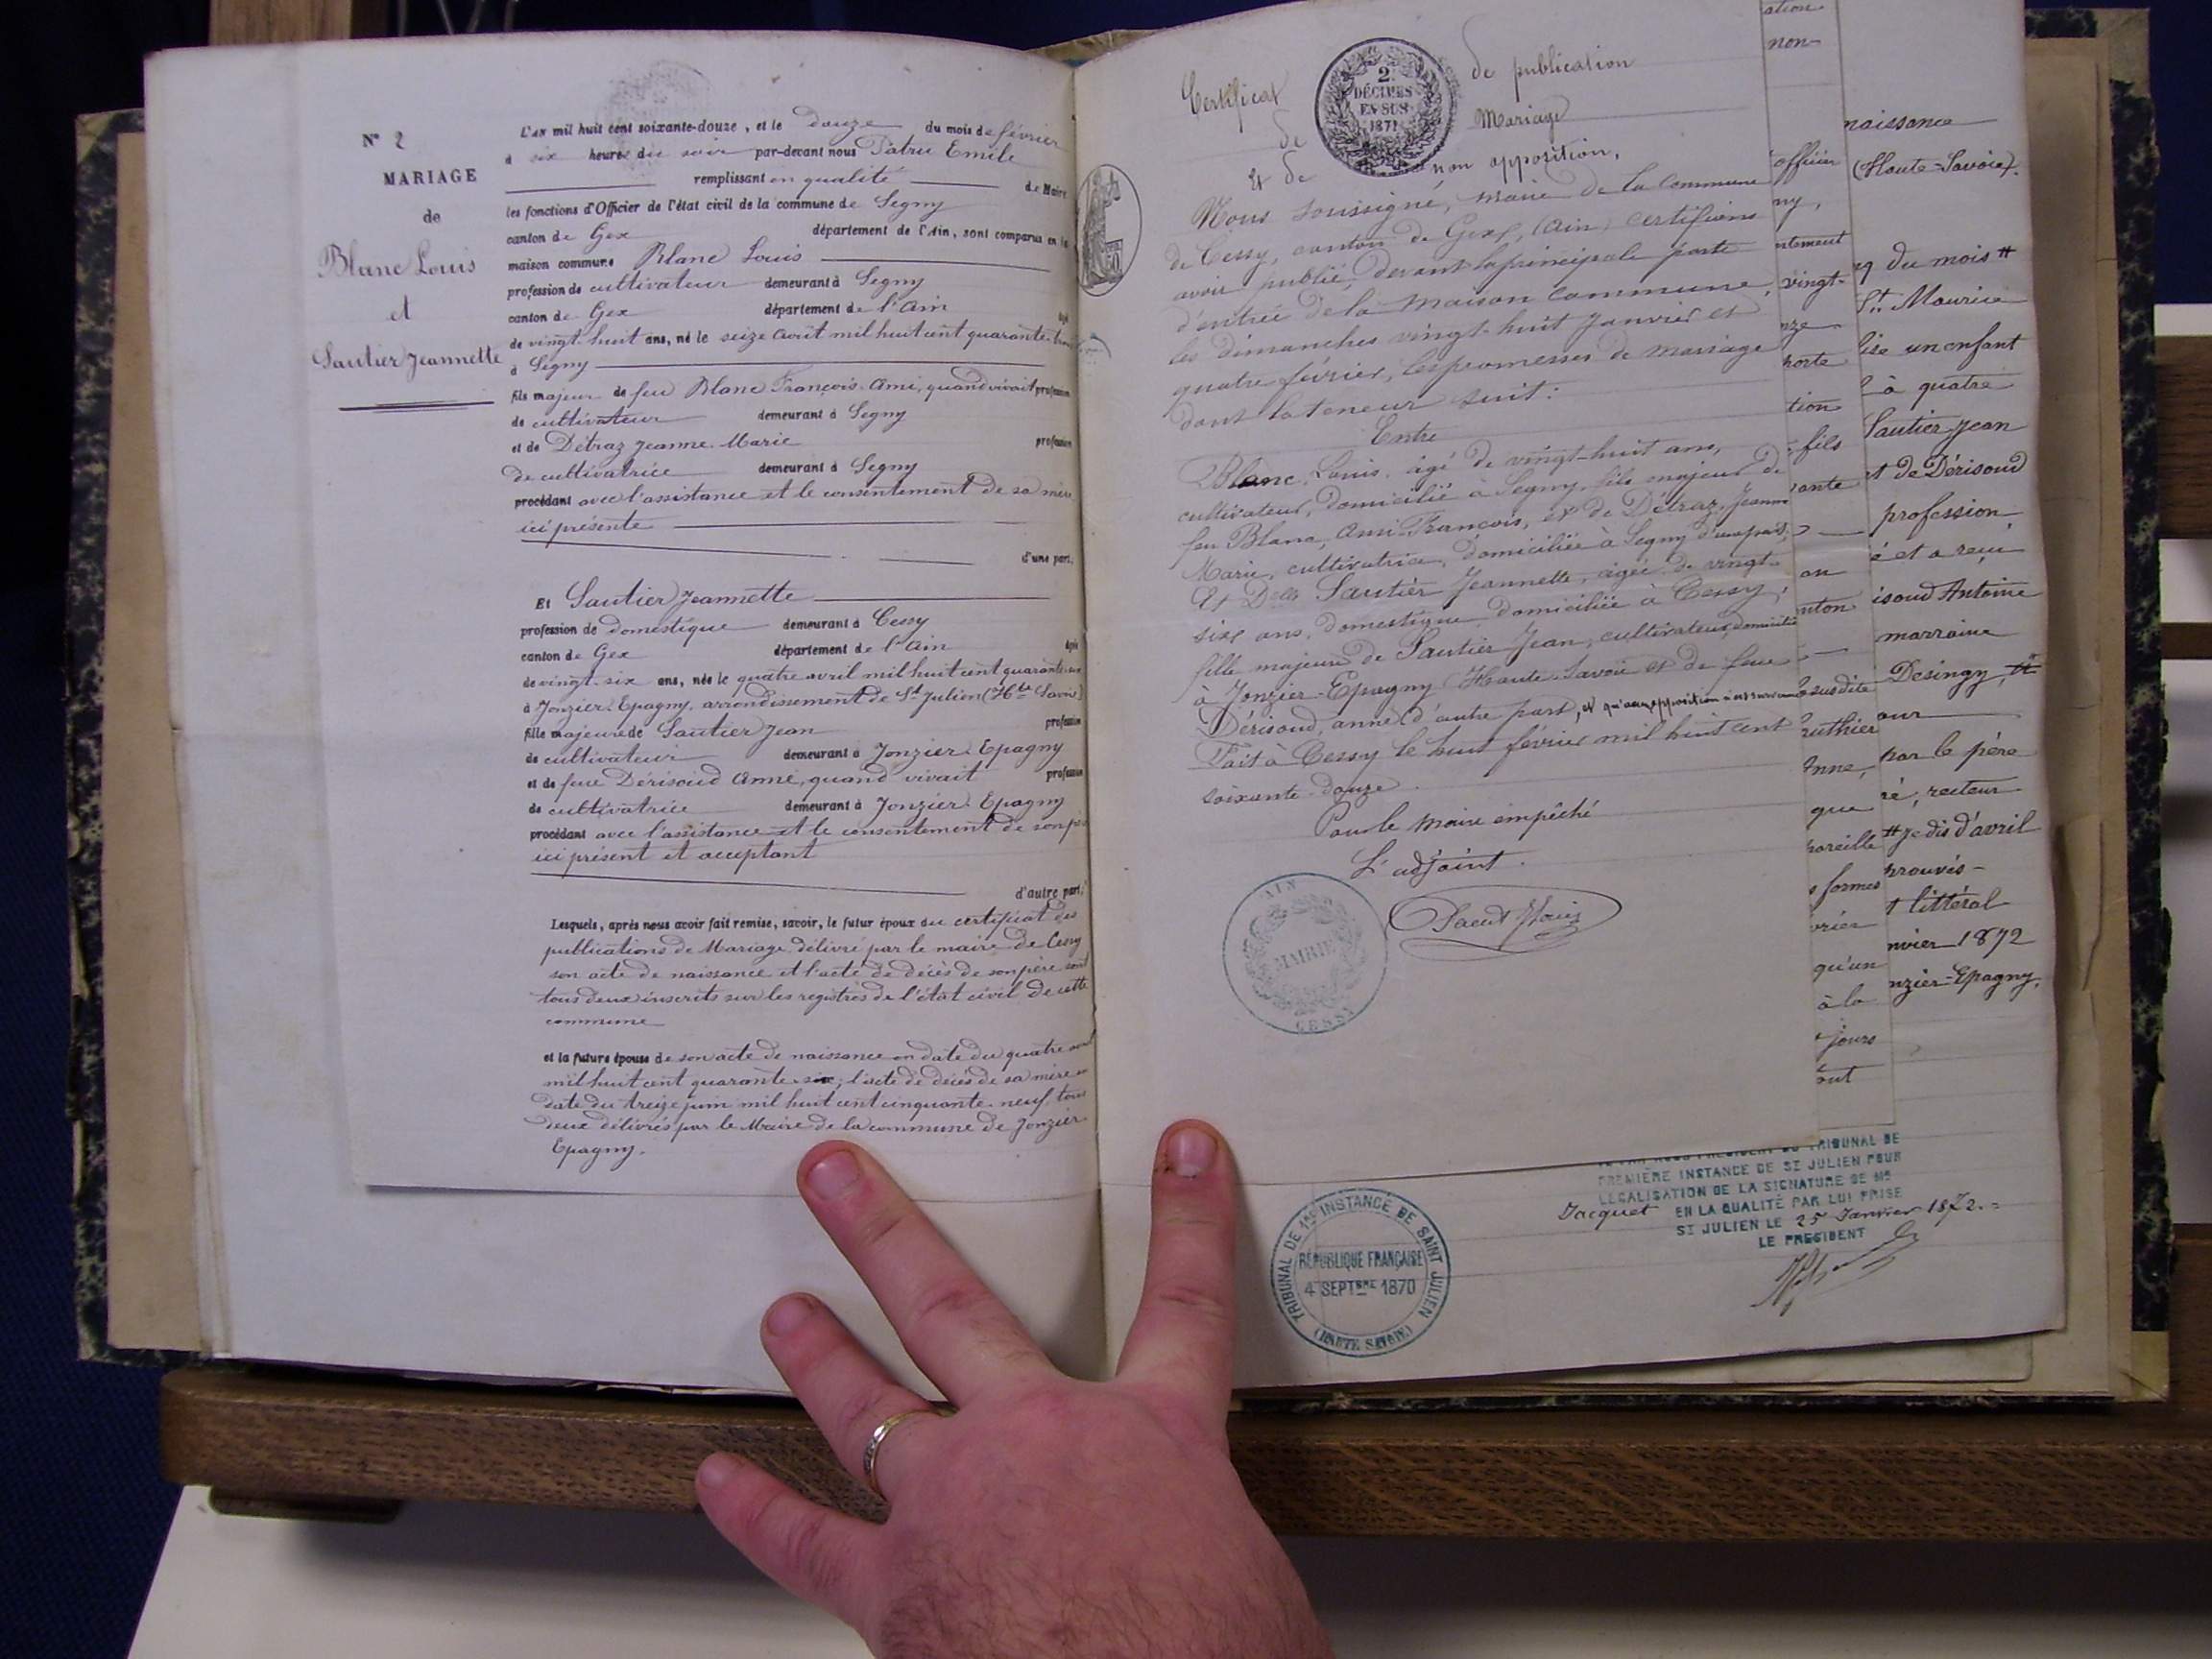 N° 2
MARIAGE
de
Blanc Louis
et
Sautier Jeannette
L'an mil huit cent soixante-douze, et le douze du mois de février
à six heures du soir par-devant nous Patru Emile
remplissant en qualité de Maire
les fonctions d'Officier de l'état civil de la commune de Segny
canton de Gex département de l'Ain, sont comparus en la
maison commune Blanc Louis
profession de cultivateur demeurant à Segny
canton de Gex département de l'Ain âgé
de vingt-huit ans, né le seize août mil huit cent quarante-trois
à Segny
fils majeur de feu Blanc François-Ami, quand vivait profession
de cultivateur demeurant à Segny
et de Détraz Jeanne-Marie profession
de cultivatrice demeurant à Segny
procédant avec l'assistance et le consentement de sa mère
ici présente
d'une part.
Et Sautier Jeannette
profession de domestique demeurant à Cessy
canton de Gex département de l'Ain âgée
de vingt-six ans, née le quatre avril mil huit cent quarante-six
à Jonzier-Epagny, arrondissement de St Julien (Hte Savoie)
fille majeure de Sautier Jean profession
de cultivateur demeurant à Jonzier-Epagny
et de feue Dérisoud Anne, quand vivait profession
de cultivatrice demeurant à Jonzier-Epagny
procédant avec l'assistance et le consentement de son père
ici présent et acceptant
d'autre part.
Lesquels, après nous avoir fait remise, savoir, le futur époux du certificat des
publications de Mariage délivré par le maire de Cessy
son acte de naissance et l'acte de décès de son père sont
tous deux inscrits sur les registres de l'état civil de cette
commune
et la future épouse de son acte de naissance en date du quatre avril
mil huit cent quarante-six; l'acte de décès de sa mère en
date du treize juin mil huit cent cinquante-neuf, tous
deux délivrés par le Maire de la commune de Jonzier-
Epagny.
2
DÉCIMES
EN SUS
1871
Certificat de publication
de Mariage
Et de non opposition,
Nous soussigné, maire de la commune
de Cessy, canton de Gex, (Ain) certifions
avoir publié, devant la principale porte
d'entrée de la maison commune,
les dimanches vingt-huit Janvier et
quatre février, les promesses de mariage
dont la teneur suit:
Entre
Blanc, Louis, âgé de vingt-huit ans,
cultivateur, domicilié à Segny, fils majeur de
feu Blanc, Ami-François, et de Détraz, Jeanne
Marie, cultivatrice, domiciliée à Segny d'une part;
Et Delle Sautier Jeannette, âgée de vingt-
six ans, domestique, domiciliée à Cessy,
fille majeure de Sautier Jean, cultivateur, domicilié
à Jonzier-Epagny (Haute-Savoie et de feue
Dérisoud, anne d'autre part, et qu'aucune opposition n'est survenue
Fait à Cessy le huit février mil huit cent
soixante-douze.
Pour le maire empêché
L'adjoint.
AIN
MAIRIE
CESSY
ation
non-
officier
ny,
rtement
vingt-
nze
porte
tion
fils
ante
an
nton
susdite
ruthier
Anne,
que
pareille
s formes
vrier
qu'un
à la
jours
out
naissance
(Haute-Savoie).
du mois #
St Maurice
lise un enfant
à quatre
Sautier Jean
et de Dérisoud
profession
é et a reçu
isoud Antoine
marraine
Desingy
our
par le père
ré, recteur
# je dis d'avril
prouvés-
littéral
nvier 1872
nzier-Epagny.
TRIBUNAL DE
PREMIÈRE INSTANCE DE ST JULIEN POUR
LÉGALISATION DE LA SIGNATURE DE Mr
Jacquet EN LA QUALITÉ PAR LUI PRISE
ST JULIEN LE 25 Janvier 1872.
LE PRÉSIDENT
TRIBUNAL DE 1RE INSTANCE DE SAINT JULIEN
RÉPUBLIQUE FRANÇAISE
4 SEPTBRE 1870
(HAUTE SAVOIE)